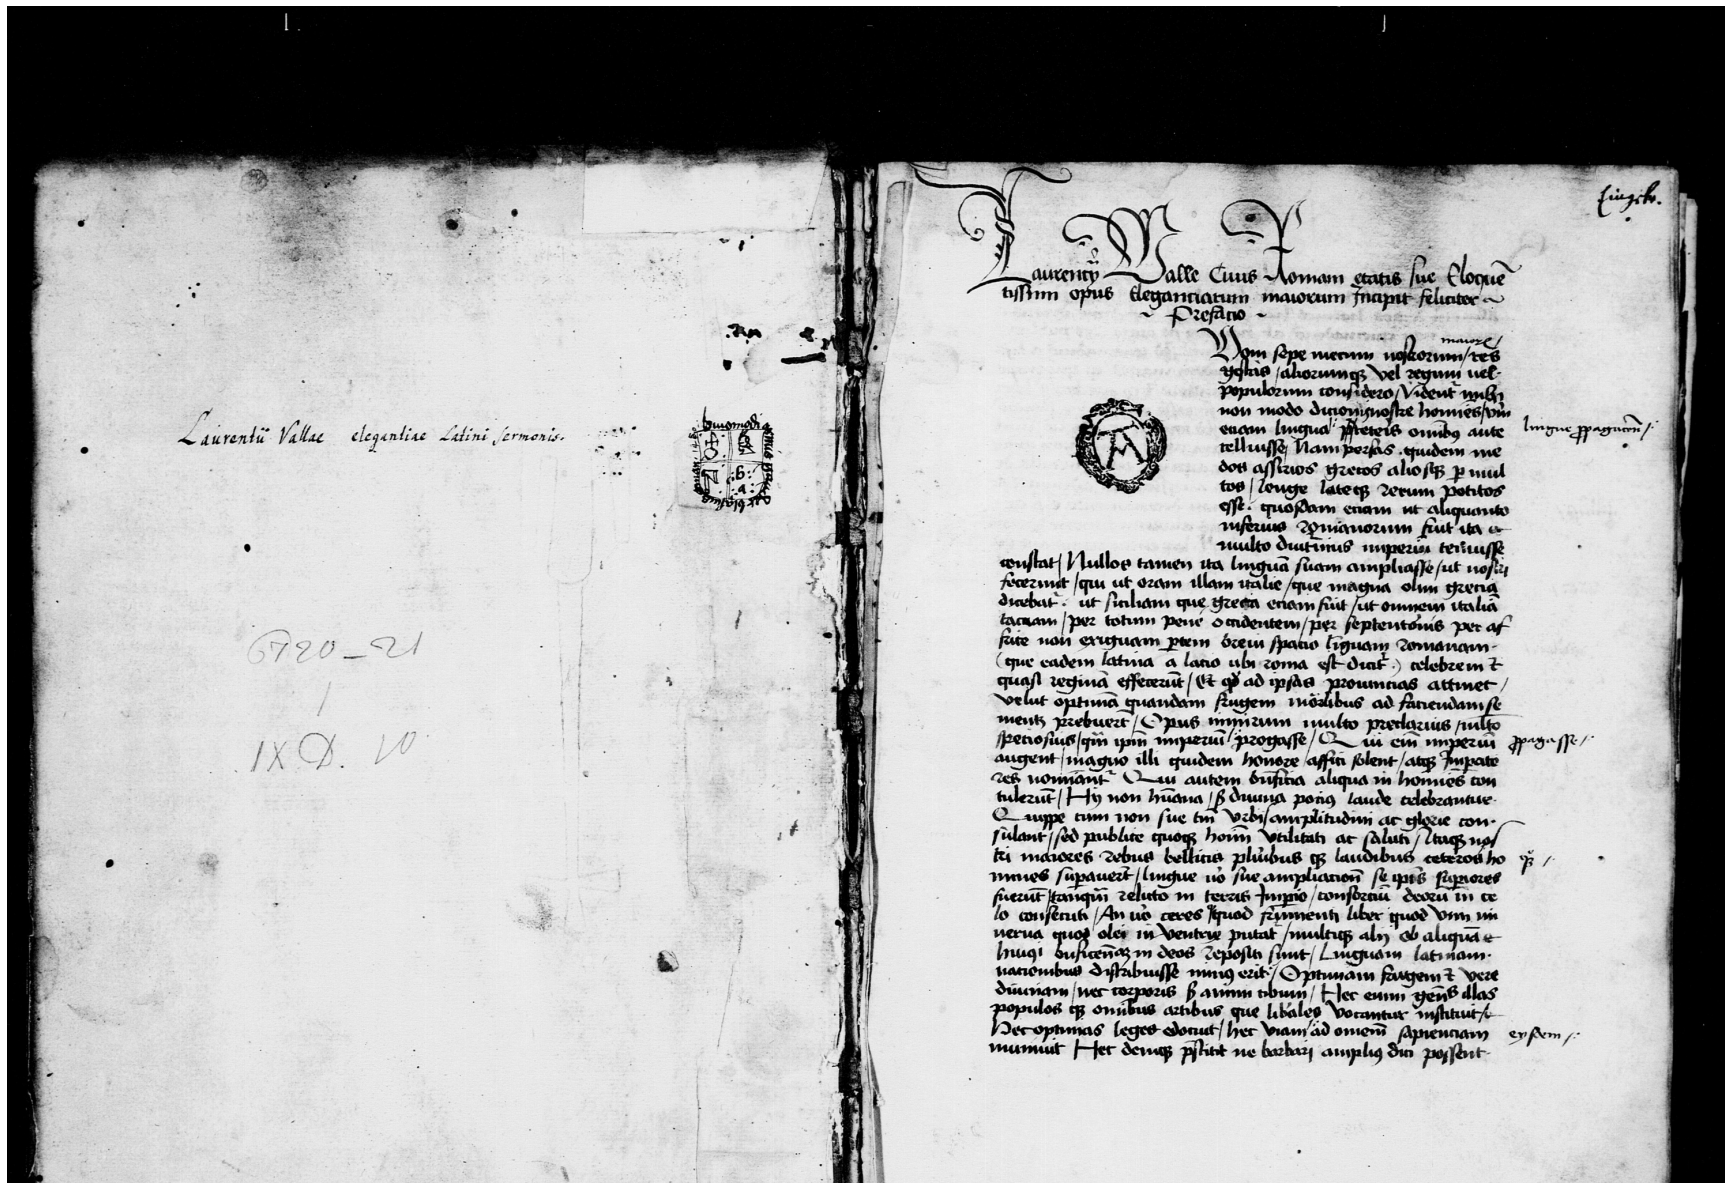 Laurentii Vallae elegantiae Latini sermonis.
6720_21
1
IX D. 10
Laurentij Valle Ciuis Romani etatis sue Eloquē
tissimi opus Eleganciarum maiorum Incipit feliciter
Prefatio
maiorꝫ
Vom sepe mecum nostrorum / res
gestas / aliorumqꝫ vel regum uel
populorum considero / Vident̄ mihi
non modo dicionis nostre homines / vm̄
etiam lingue p̄ceteris omībꝫ ante
lingue ꝓpagacōn /
celluisse / Nam persas quidem me
dos assirios grecos aliosqꝫ per mul
tos / longe lateqꝫ rerum potitos
esse. quosdam etiam ut aliquanto
inferius romanorum fuit ita
multo diuturnius imperiū tenuisse
constat / Nullos tamen ita linguā suam ampliasse / ut nostri
fecerunt / qui ut oram illam italie / que magna olim grecia
dicebat̄. ut siciliam que greca etiam fuit / ut omnem italiā
taceam / per totum pene occidentem / per septentōnis per af
frice non exiguam ꝑtem breui spacio līguam romanam
(que eadem latina a lacio ubi roma est dicit̄.) celebrem et
quasi reginā effecerūt / Et qđ ad ipsas prouincias attinet /
velut optimā quandam frugem mortalibus ad faciendam se
mentē prebuerūt / Opus nimirum multo preclarius / multo
speciosius / qm̄ ipm̄ imperiū progasse / Qui eīm imperiū
ꝓpagasse /
augent / magno illi quidem honore affici solent / atqꝫ Impato
res nominant̄ Qui autem bn̄ficia aliqua in homines con
tulerūt / Hij non hūana / sꝫ diuina pociꝰ laude celebrantur
Quippe cum non sue tm̄ vrbis amplitudini ac glorie con
sulant / sed publice quoqꝫ hoīm vtilitati ac saluti / Itaqꝫ nos
tri maiores rebus bellicis pluribus qꝫ laudibus ceteros ho
mines supauerūt / lingue vo sue ampliacion̄ se ipsis supiores
fuerūt / tanqm̄ relicto in terris Impio / consorciū deorū in ce
lo consecuti / An vo ceres quod frumenti liber quod vini mi
nerua quod olei inuentrix putat̄ / multiqꝫ alij ob aliquā
huiꝰi bn̄ficenciā in deos repositi sunt / Linguam latinam
nacionibus distribuisse minꝰ erit / Optimam frugem et vere
diuinam / nec corporis sꝫ animi cibum / Hec enim gentes illas
populos qꝫ omibus artibus que libales vocantur instituit /
Hec optimas leges edocuit / hec viam ad omem̄ sapienciam
eysdem /
muniuit Hec deniqꝫ p̄stitit ne barbari ampliꝰ dici possent